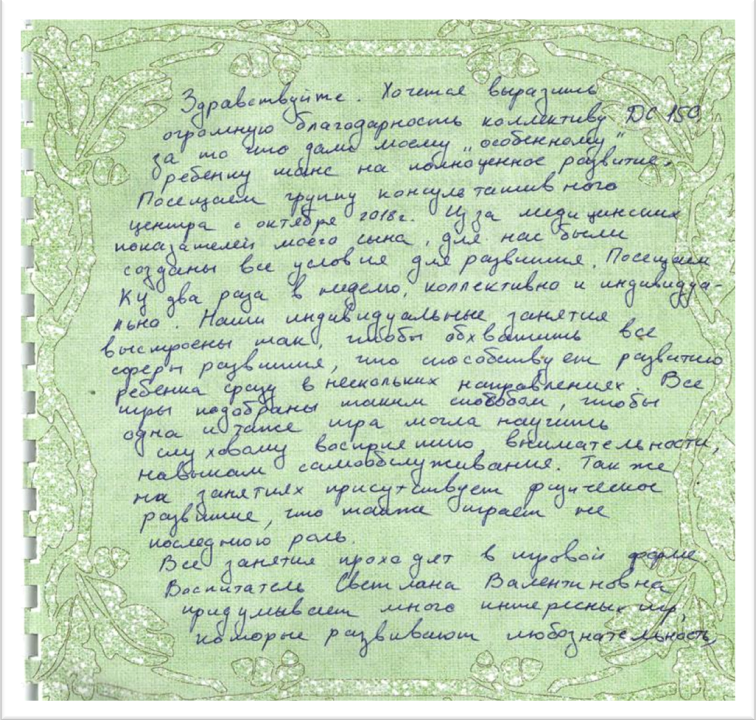 Здравствуйте. Хочется выразить
огромную благодарность коллективу ДС 150
за то что дали моему „особенному"
ребенку шанс на полноценное развитие.
Посещаем группу консультативного
центра с октября 2018г. Из за медицинских
показателей моего сына, для нас были
созданы все условия для развития. Посещаем
КЦ два раза в неделю, коллективно и индивидуа-
льно. Наши индивидуальные занятия
выстроены так, чтобы обхватить все
сферы развития, что способствует развитию
ребенка сразу в нескольких направлениях. Все
игры подобраны таким способом, чтобы
одна и таже игра могла научить
слуховому восприятию внимательности,
навыкам самообслуживания. Так же
на занятиях присутствует физическое
развитие, что также играет не
последнюю роль.
Все занятия проходят в игровой форме
Воспитатель Светлана Валентиновна
придумывает много интересных игр,
которые развивают любознательность,